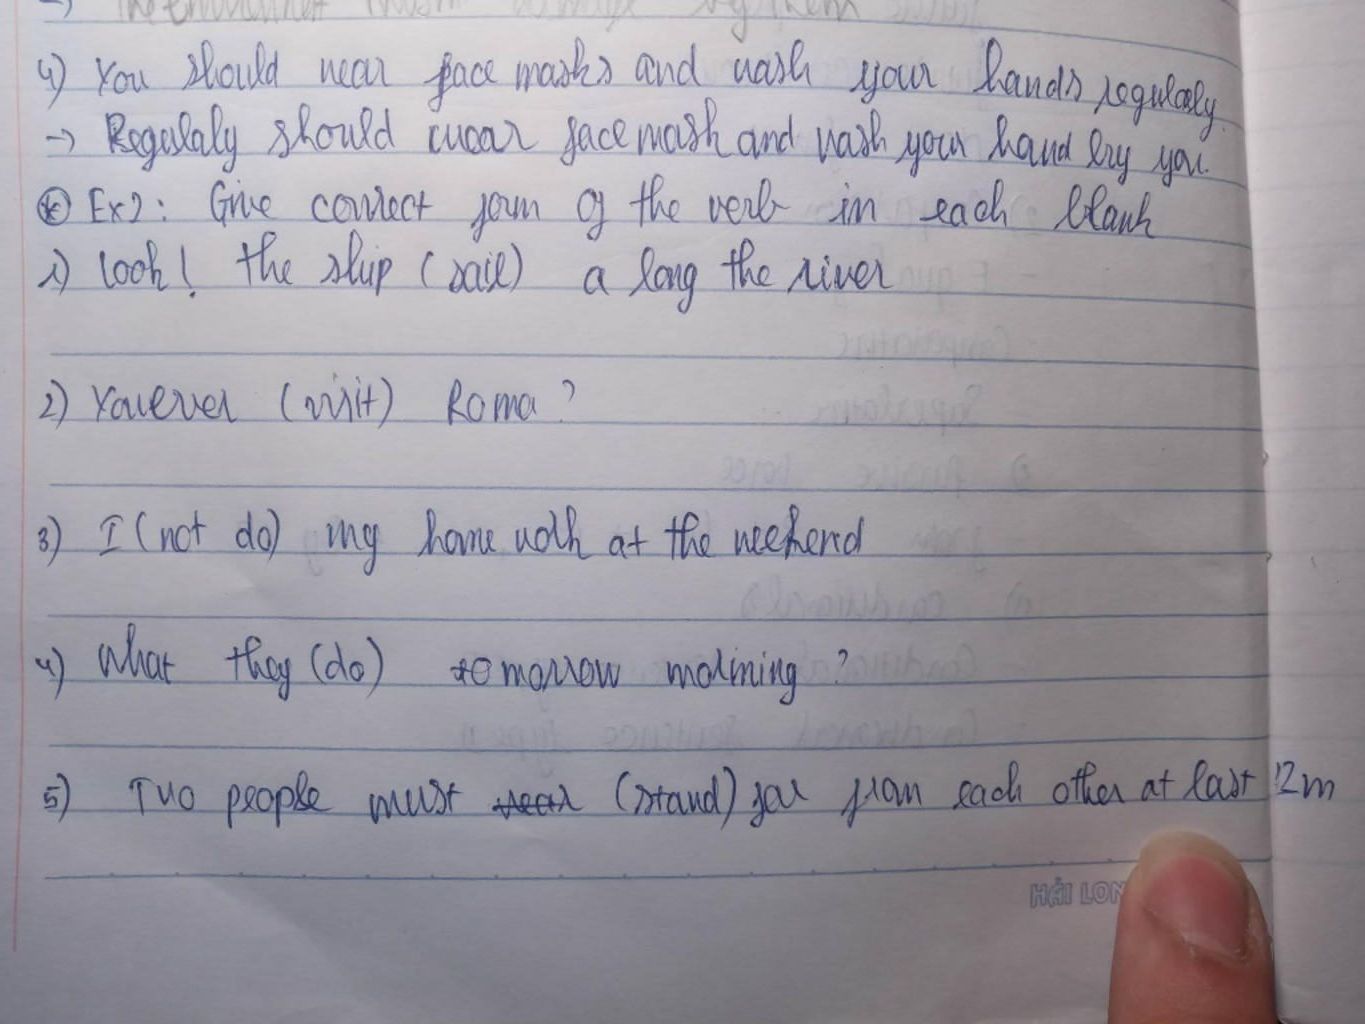 4) You should wear face masks and wash your hands regularly.
-> Regulaly should wear face mask and wash your hand by you.
* Ex2: Give correct form of the verb in each blank
1) Look! the ship (sail) a long the river
2) You ever (visit) Roma?
3) I (not do) my home wolk at the weekend
4) What they (do) tomorrow molining?
5) Two people must wear (stand) far from each other at last 2m
HẢI LON